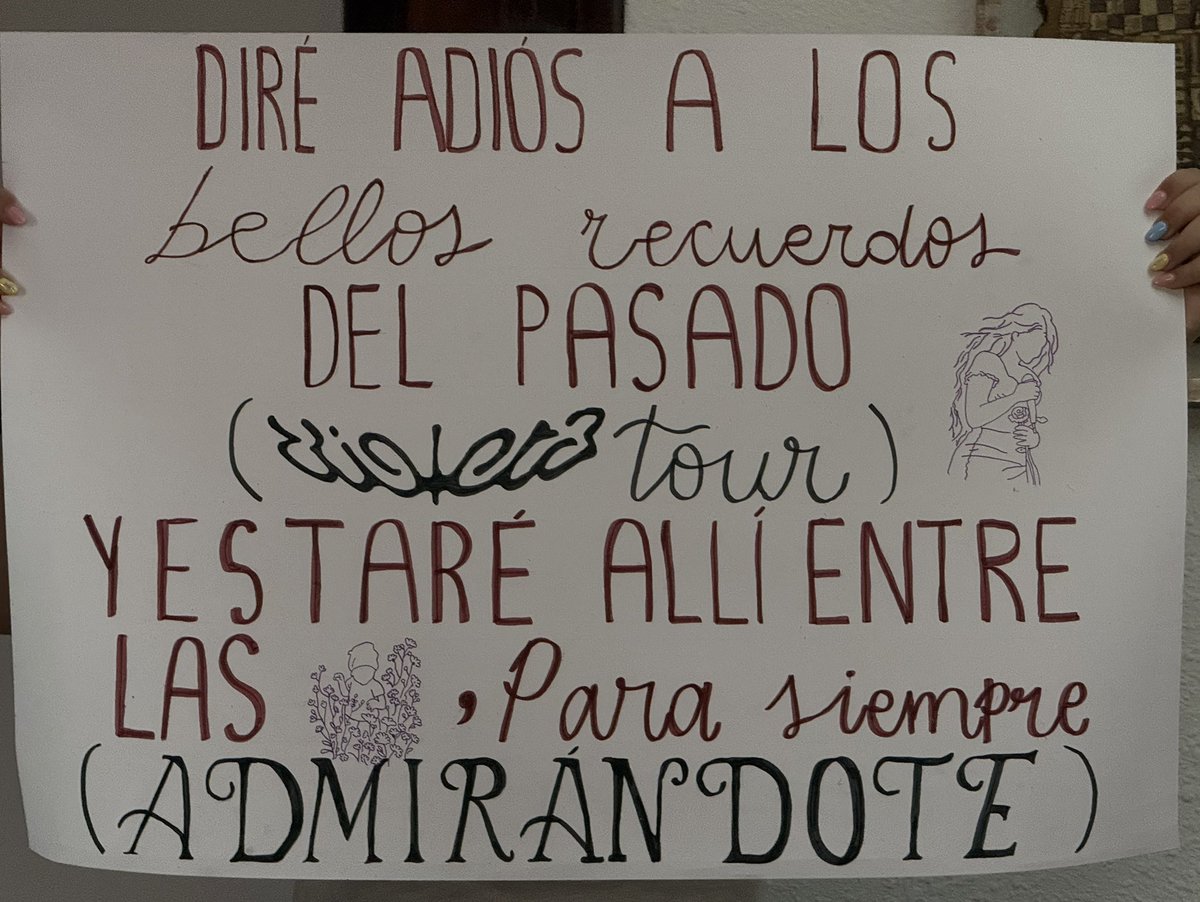 DIRÉ ADIÓS A LOS
bellos recuerdos
DEL PASADO
(violeta tour)
Y ESTARÉ ALLÍ ENTRE
LAS , Para siempre
(ADMIRÁNDOTE)